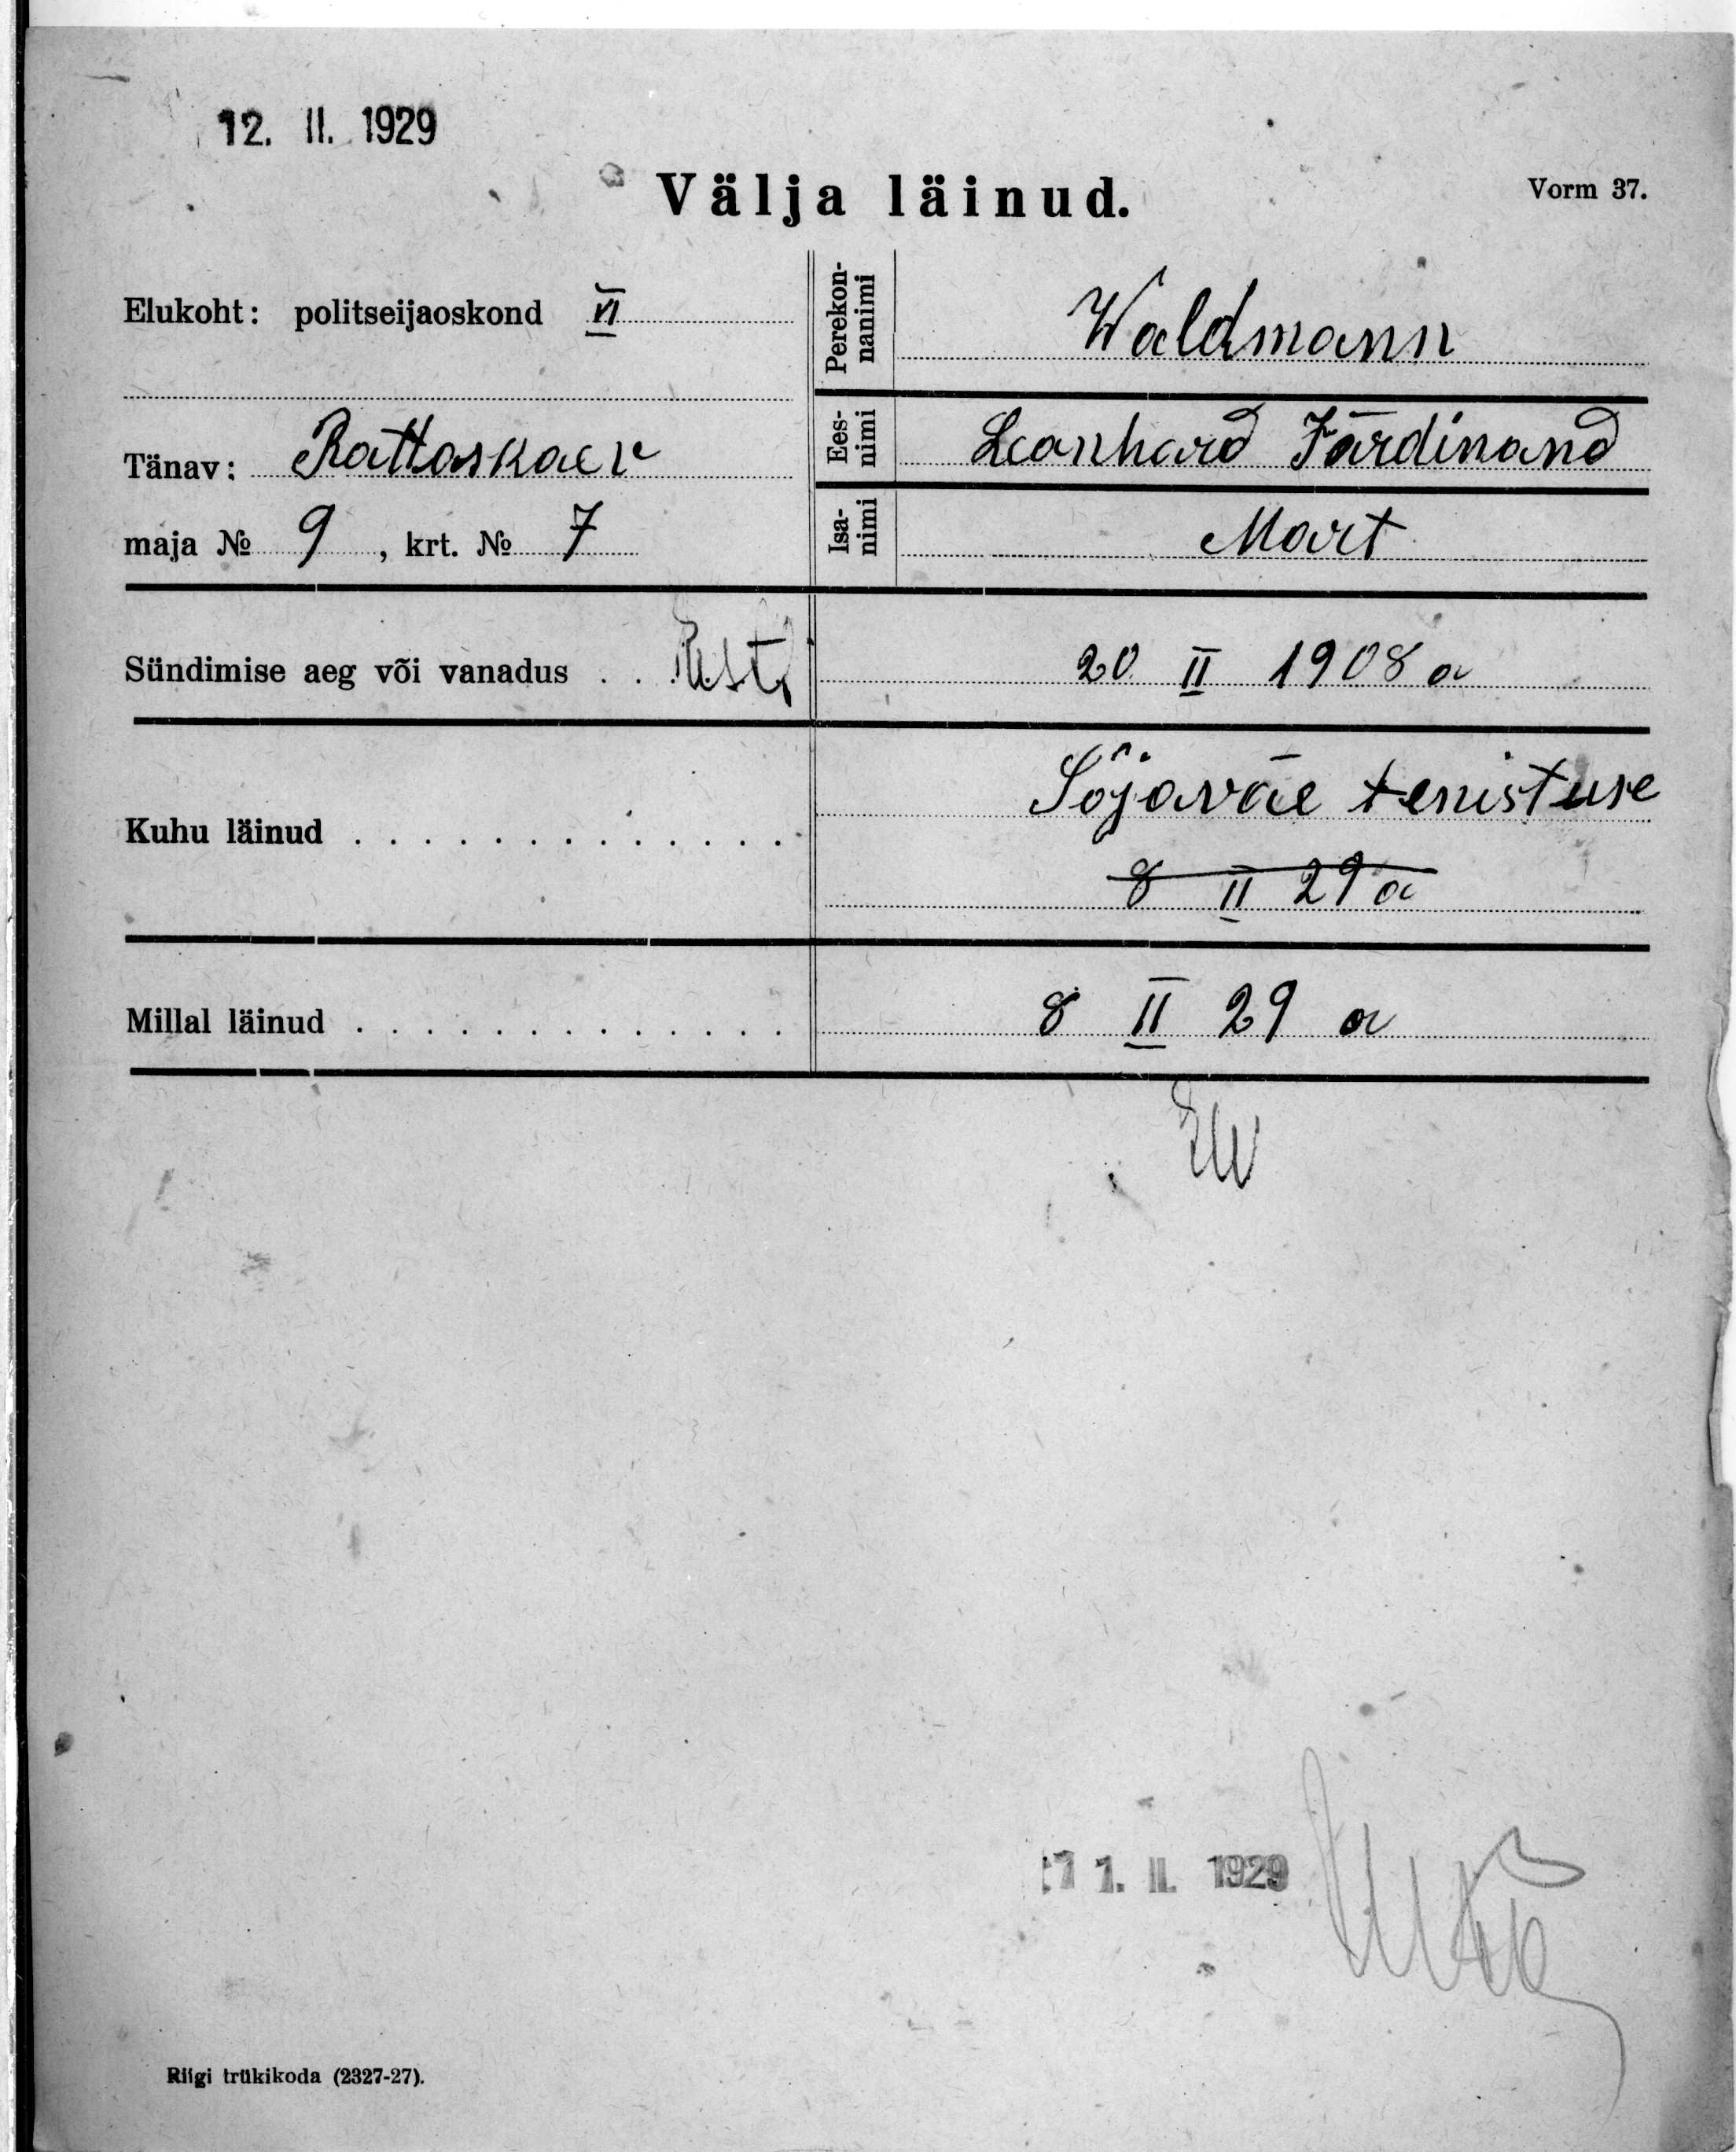 12. II. 1929
Välja läinud.
Vorm 37.
Elukoht: politseijaoskond VI
Tänav: Rattaskaev
maja № 9, krt. № 7
Perekon-
nanimi
Waldmann
Ees-
nimi
Leonhard Färdinand
Isa-
nimi
Mart
Sündimise aeg või vanadus . .
20 II 1908 a
Kuhu läinud . . . . . . . . . . . . .
Sõjaväe tenistuse
8 II 29 a
Millal läinud . . . . . . . . . . . . .
8 II 29 a
11. II. 1929
Riigi trükikoda (2327-27).